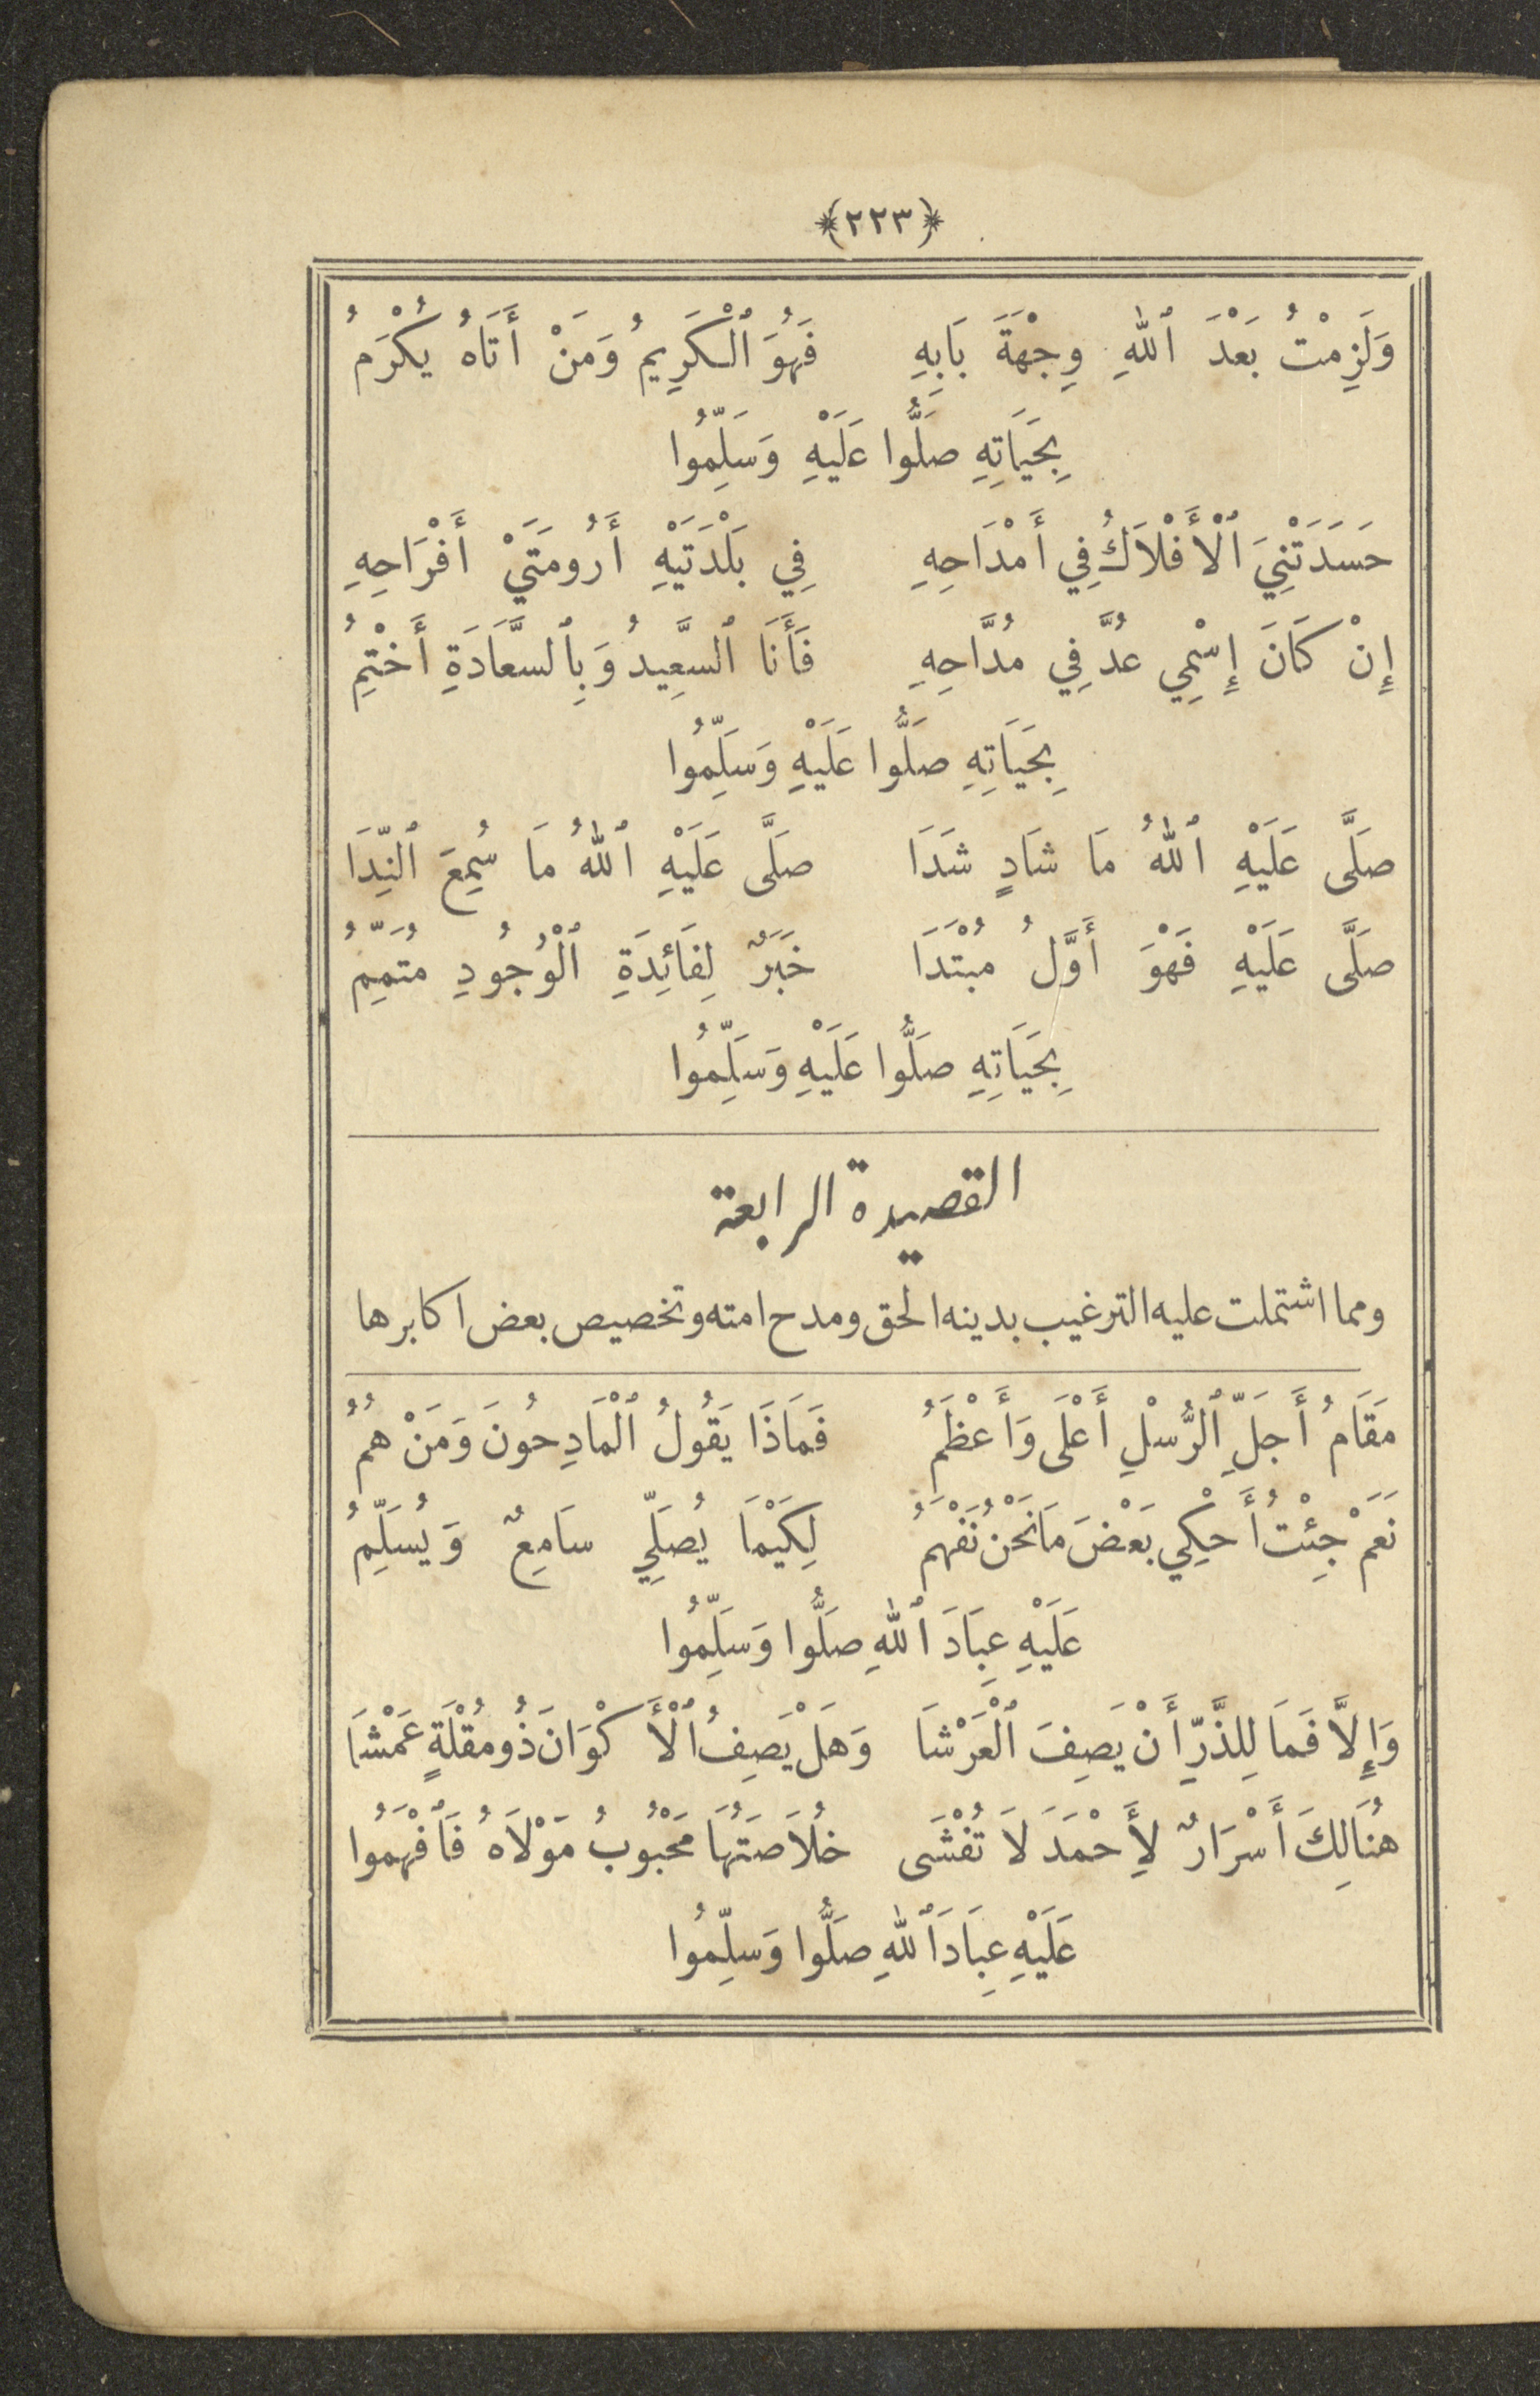 ﴿٢٢٣﴾
وَلَزِمْتُ بَعْدَ ٱللهِ وِجْهَةَ بَابِهِ فَهُوَ ٱلْكَرِيمُ وَمَنْ أَتَاهُ يُكْرَمُ
بِحَيَاتِهِ صَلُّوا عَلَيْهِ وَسَلِّمُوا
حَسَدَتْنِيَ ٱلْأَفْلَاكُ فِي أَمْدَاحِهِ فِي بَلْدَتَيْهِ أَرُومَتَيْ أَفْرَاحِهِ
إِنْ كَانَ إِسْمِي عُدَّ فِي مُدَّاحِهِ فَأَنَا ٱلسَّعِيدُ وَبِٱلسَّعَادَةِ أَخْتِمُ
بِحَيَاتِهِ صَلُّوا عَلَيْهِ وَسَلِّمُوا
صَلَّى عَلَيْهِ ٱللهُ مَا شَادٍ شَدَا صَلَّى عَلَيْهِ ٱللهُ مَا سُمِعَ ٱلنِّدَا
صَلَّى عَلَيْهِ فَهْوَ أَوَّلُ مُبْتَدَا خَبَرٌ لِفَائِدَةِ ٱلْوُجُودِ مُتَمِّمُ
بِحَيَاتِهِ صَلُّوا عَلَيْهِ وَسَلِّمُوا
القصيدة الرابعة
ومما اشتملت عليه الترغيب بدينه الحق ومدح امته وتخصيص بعض اكابرها
مَقَامُ أَجَلِّ ٱلرُّسْلِ أَعْلَى وَأَعْظَمُ فَمَاذَا يَقُولُ ٱلْمَادِحُونَ وَمَنْ هُمُ
نَعَمْ جِئْتُ أَحْكِي بَعْضَ مَا نَحْنُ نَفْهَمُ لِكَيْمَا يُصَلِّي سَامِعٌ وَيُسَلِّمُ
عَلَيْهِ عِبَادَ ٱللهِ صَلُّوا وَسَلِّمُوا
وَإِلَّا فَمَا لِلذَّرِّ أَنْ يَصِفَ ٱلْعَرْشَا وَهَلْ يَصِفُ ٱلْأَكْوَانَ ذُو مُقْلَةٍ عَمْشَا
هُنَالِكَ أَسْرَارٌ لِأَحْمَدَ لَا تُفْشَى خُلَاصَتُهَا مَحْبُوبُ مَوْلَاهُ فَٱفْهَمُوا
عَلَيْهِ عِبَادَ ٱللهِ صَلُّوا وَسَلِّمُوا